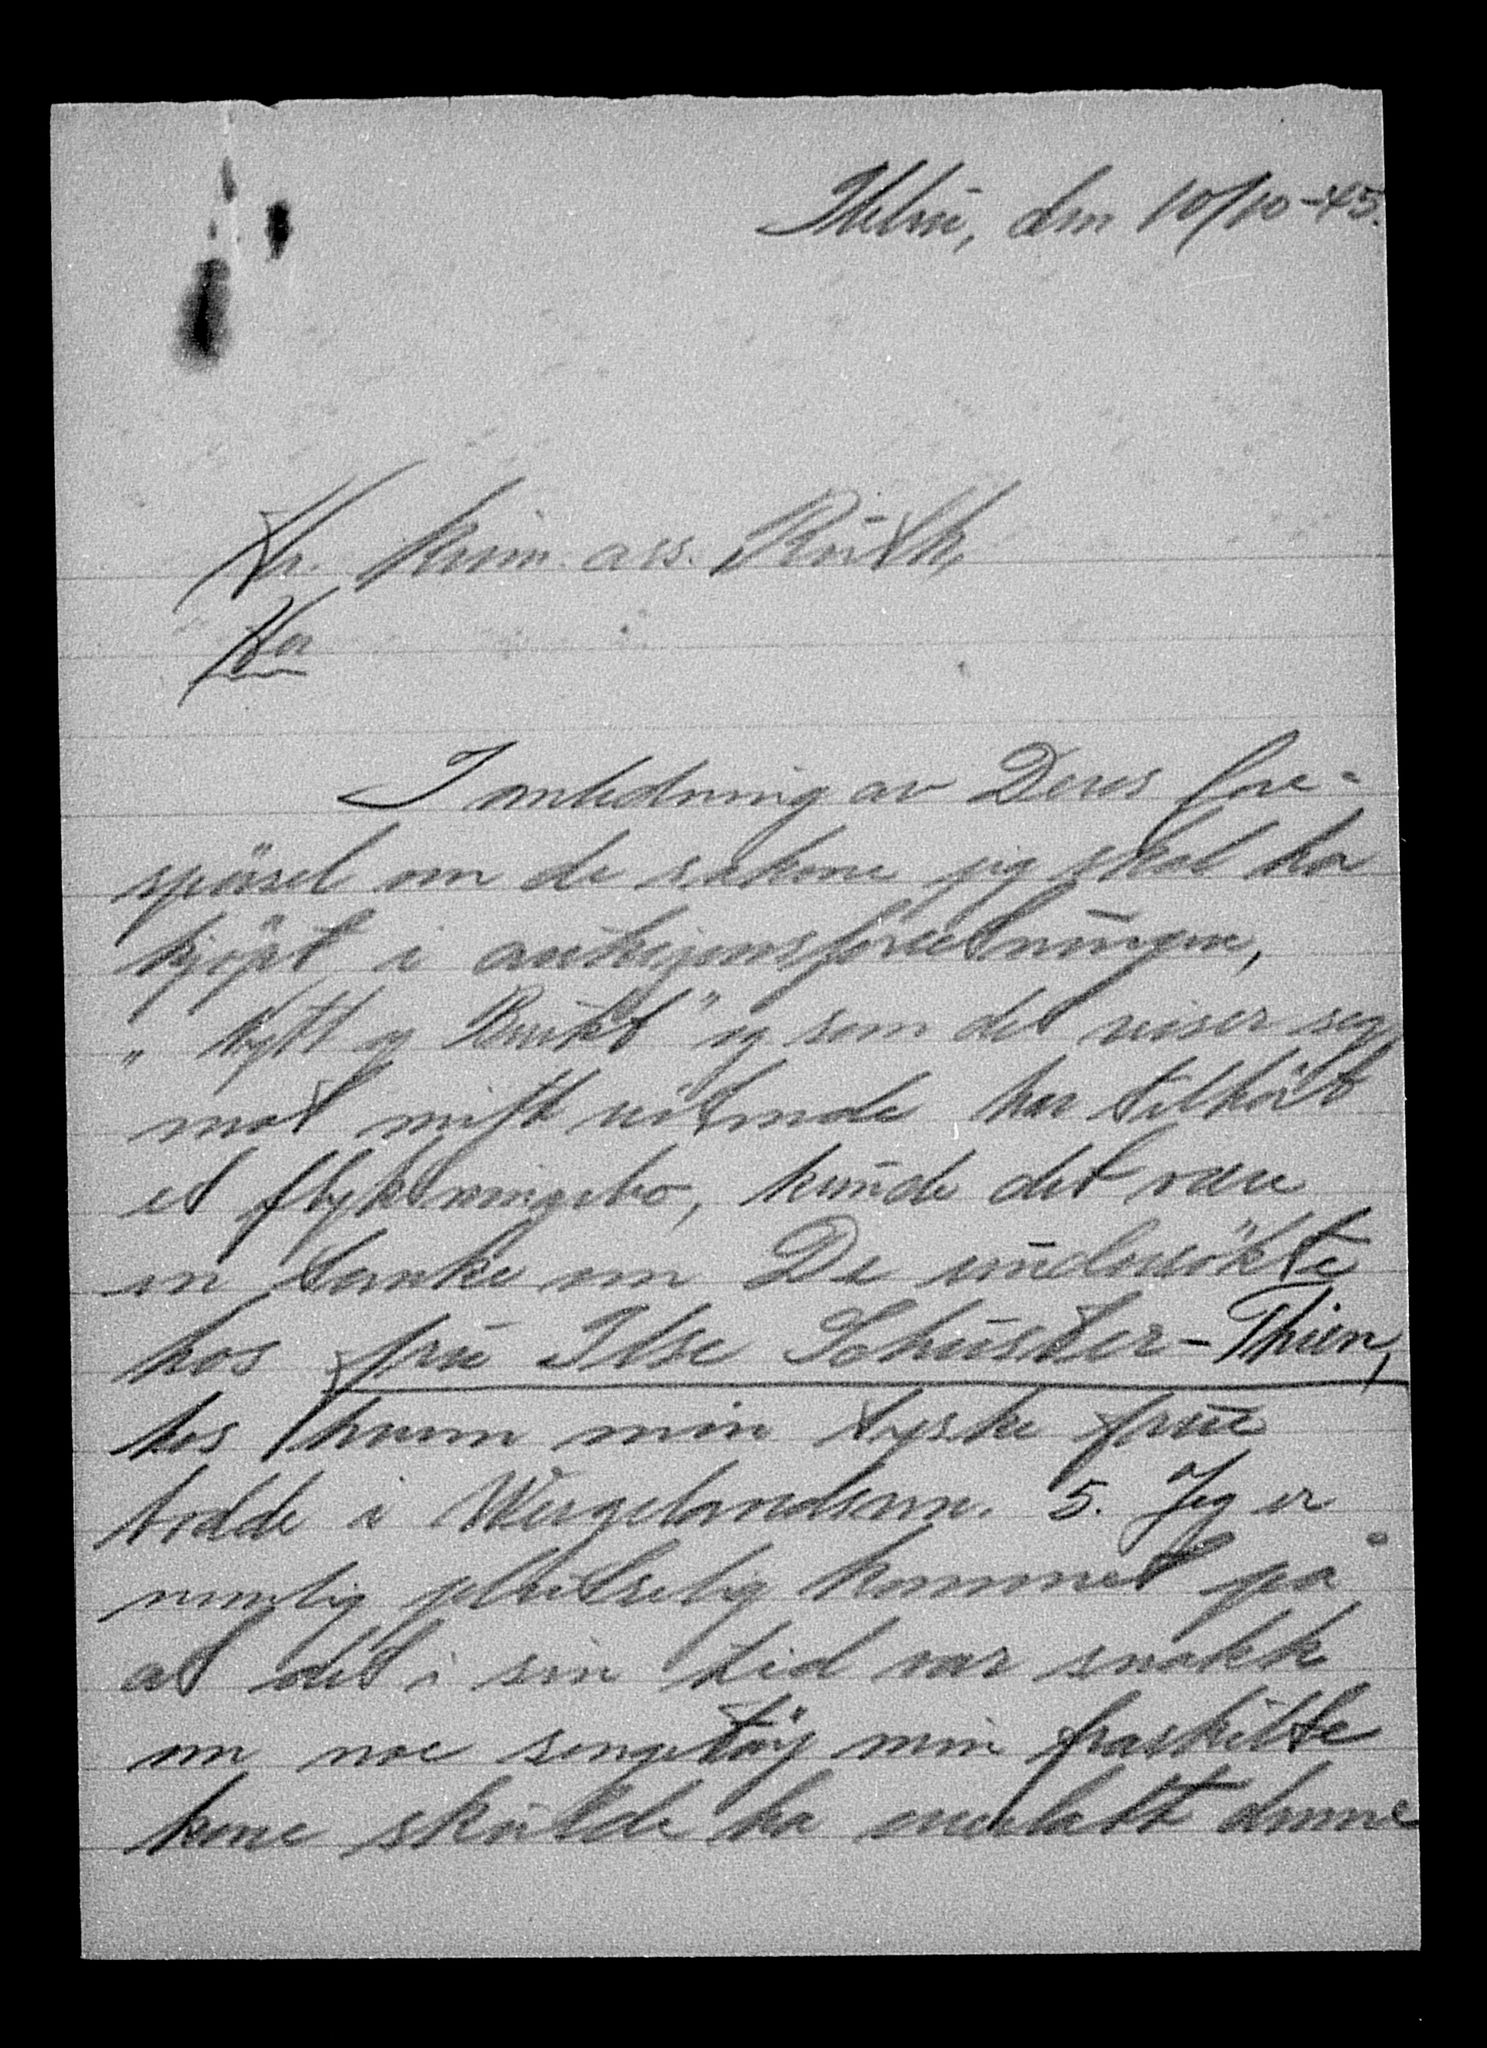 den 10/10-45.
Hr. krim. ass.
Her
I anledning av Deres fore-
spørsel om de sakene jeg skal ha
kjöpt i auksjonsforretningen,
"Nytt og Brukt" og som det viser seg
mot mitt vitende har tilhört
et flyktningebo, kunde det være
en tanke om De undersökte
hos frü Ilse Schüster-Thien,
hos hvem min tyske frue
bodde i Wergelandsvn. 5. Jeg er
nemlig plutselig kommet på
at det i sin tid var snakk
om noe sengetöy min fraskilte
kone skulde ha overlatt denne